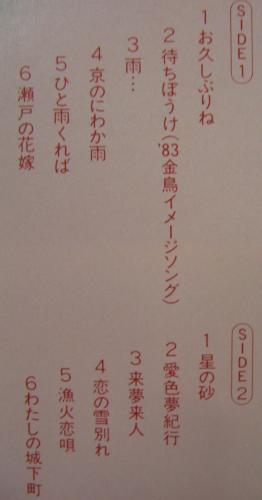 SIDE1
1お久しぶりね
2待ちぼうけ('83金鳥イメージソング)
3雨…
4京のにわか雨
5ひと雨くれば
6瀬戸の花嫁
SIDE2
1星の砂
2愛色夢紀行
3来夢来人
4恋の雪別れ
5漁火恋唄
6わたしの城下町